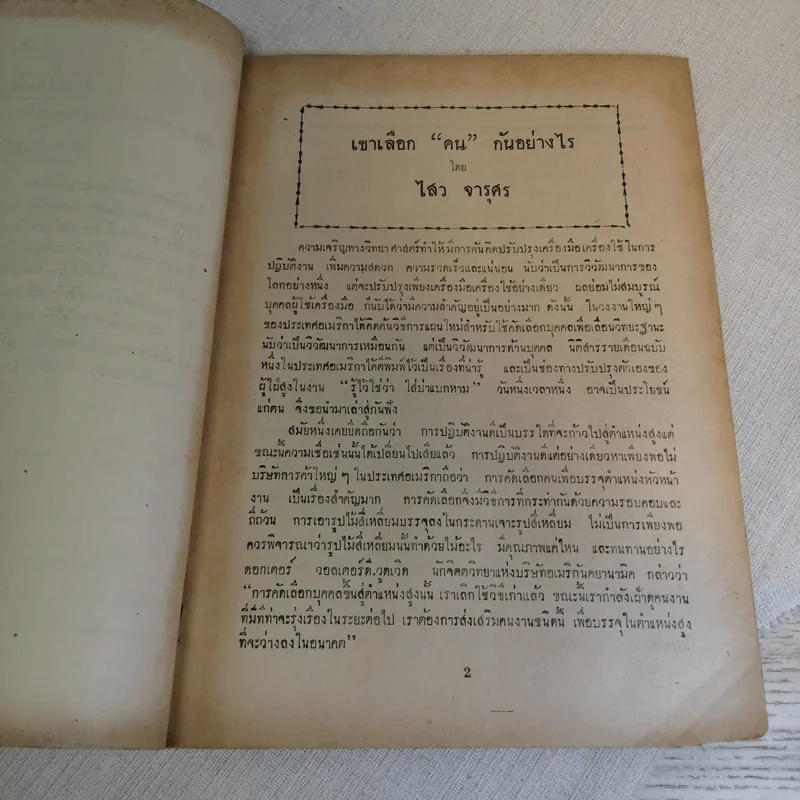 เขาเลือก “คน” กันอย่างไร
โดย
ไสว จารุศร
ความเจริญทางวิทยาศาสตร์ทำให้มีการคิดปรับปรุงเครื่องมือเครื่องใช้ ในการ
ปฏิบัติงาน เพิ่มความสดวก ความรวดเร็วและแน่นอน นับว่าเป็นการวิวัฒนาการของ
โลกอย่างหนึ่ง แต่จะปรับปรุงเพียงเครื่องมือเครื่องใช้อย่างเดียว ผลย่อมไม่สมบูรณ์
บุคคลผู้ใช้เครื่องมือ ก็นับได้ว่ามีความสำคัญอยู่เป็นอย่างมาก ดังนั้น ในวงงานใหญ่ ๆ
ของประเทศอเมริกาได้คิดค้นวิธีการแผนใหม่สำหรับใช้คัดเลือกบุคคลเพื่อเลื่อนวิทยะฐานะ
นับว่าเป็นวิวัฒนาการเหมือนกัน แต่เป็นวิวัฒนาการด้านบุคคล นิตสารรายเดือนฉบับ
หนึ่งในประเทศอเมริกาได้ตีพิมพ์ไว้เป็นเรื่องที่น่ารู้ และเป็นช่องทางปรับปรุงตัวเองของ
ผู้ใฝ่สูงในงาน “รู้ไว้ใช่ว่า ใส่บ่าแบกหาม” วันหนึ่งเวลาหนึ่ง อาจเป็นประโยชน์
แก่ตน จึงขอนำมาเล่าสู่กันฟัง
สมัยหนึ่งเคยยึดถือกันว่า การปฏิบัติงานดีเป็นบรรใดที่จะก้าวไปสู่ตำแหน่งสูงแต่
ขณะนี้ความเชื่อเช่นนั้นได้เปลี่ยนไปเสียแล้ว การปฏิบัติงานดีแต่อย่างเดียวหาเพียงพอไม่
บริษัทการค้าใหญ่ ๆ ในประเทศอเมริกาถือว่า การคัดเลือกคนเพื่อบรรจุตำแหน่งหัวหน้า
งาน เป็นเรื่องสำคัญมาก การคัดเลือกจึงมีวิธีการที่กระทำกันด้วยความรอบคอบและ
ถี่ถ้วน การเอารูปไม้สี่เหลี่ยมบรรจุลงในกระดานเจาะรูปสี่เหลี่ยม ไม่เป็นการเพียงพอ
ควรพิจารณาว่ารูปไม้สี่เหลี่ยมนั้นทำด้วยไม้อะไร มีคุณภาพแค่ไหน และทนทานอย่างไร
ดอกเตอร์ วอลเตอร์ดี.วูดเวิด นักจิตวิทยาแห่งบริษัทอเมริกันคยานามิค กล่าวว่า
“การคัดเลือกบุคคลขึ้นสู่ตำแหน่งสูงนั้น เราเลิกใช้วิธีเก่าแล้ว ขณะนี้เรากำลังเฝ้าดูคนงาน
ที่มีที่ท่าจะรุ่งเรืองในระยะต่อไป เราต้องการส่งเสริมคนงานชนิดนี้ เพื่อบรรจุในตำแหน่งสูง
ที่จะว่างลงในอนาคต”
2